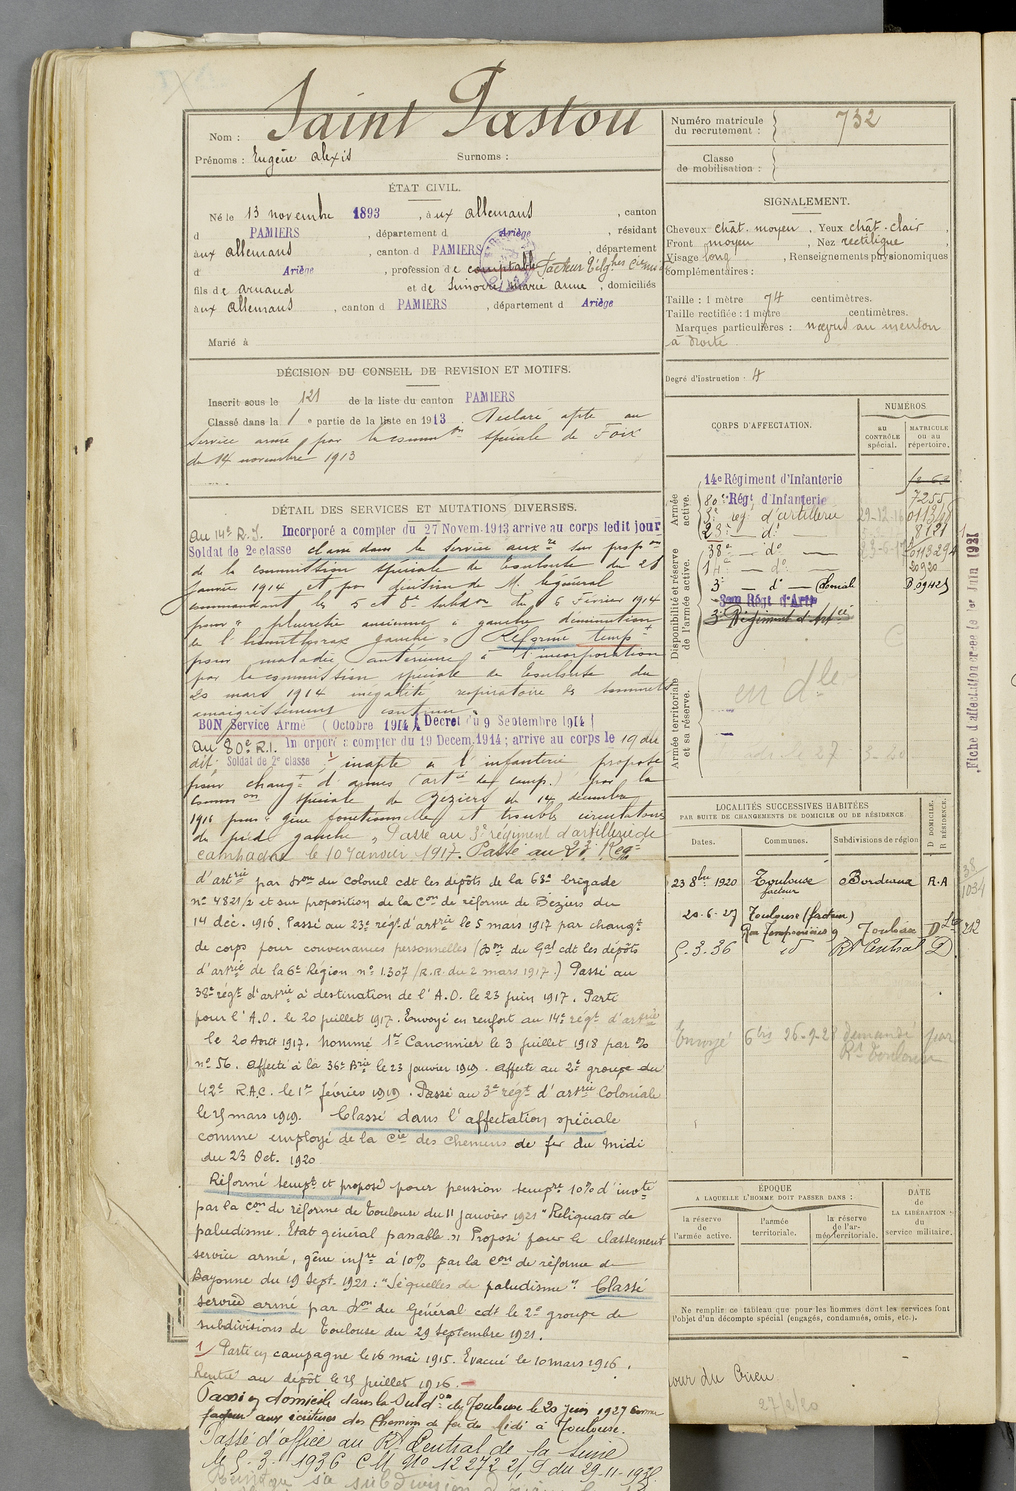 Nom : Saint Pastou
Prénoms : Eugène Alexis Surnoms :
ÉTAT CIVIL.
Né le 13 novembre 1893, à ux Allemans, canton
d PAMIERS, département d Ariège, résidant
aux Allemans, canton d PAMIERS, département
d' Ariège, profession de comptable facteur
fils de Arnaud et de Marie Anne, domiciliés
aux Allemans, canton d PAMIERS, département d Ariège
Marié à
DÉCISION DU CONSEIL DE REVISION ET MOTIFS.
Inscrit sous le n° 121 de la liste du canton PAMIERS
Classé dans la 1e partie de la liste en 1913. Déclaré apte au
service armé par la commton spéciale de Foix
du 14 novembre 1913
DÉTAIL DES SERVICES ET MUTATIONS DIVERSES.
Au 14e R.I. Incorporé a compter du 27 Novem. 1913 arrive au corps ledit jour
Soldat de 2e classe classé dans le service auxre sur propon
de la commission spéciale de Toulouse du 28
janvier 1914 et par décision de M. le général
commandant les 5 et 8e subdon du 6 Février 1914
pour " pleurésie ancienne à gauche diminution
de l'hémithorax gauche " Réformé tempt
pour maladie antérieure à l'incorporation
par la commission spéciale de Toulouse du
20 mars 1914 inégalité respiratoire des sommets
amaigrissement continu
BON Service Armé (Octobre 1914) (Décret du 9 Septembre 1914)
Au 80e R.I. Incorporé a compter du 19 Décem. 1914 ; arrive au corps le 19 du
dit. Soldat de 2e classe 1/ inapte à l'infanterie proposé
pour changt d'armes (artie de camp.) par la
common spéciale de Béziers du 14 décembre
1916 pour " gêne fonctionnelle et troubles circulatoires
du pied gauche ". Passé au 3e régiment d'artillerie de
campagne le 10 Janvier 1917. Passé au 23e Régt
d'artrie par don du Colonel cdt les dépôts de la 68e brigade
n° 4821/2 et sur proposition de la Con de réforme de Béziers du
14 déc. 1916. Passé au 23e régt d'artrie le 5 mars 1917 par changt
de corps pour convenances personnelles (Don du Gal cdt les dépôts
d'artrie de la 6e Région n° 1.307 (R.R. du 2 mars 1917.) Passé au
38e régt d'artrie à destination de l'A.O. le 23 juin 1917. Parti
pour l'A.O. le 20 juillet 1917. Envoyé en renfort au 14e régt d'artrie
le 20 Août 1917. Nommé 1er Canonnier le 3 juillet 1918 par
n° 56. Affecté à la 36e Brie le 23 janvier 1919. Affecté au 2e groupe du
42e R.A.C. le 1er février 1919. Passé au 3e régt d'artrie Coloniale
le 25 mars 1919. Classé dans l'affectation spéciale
comme employé de la Cie des Chemins de fer du Midi
du 23 Oct. 1920
Réformé tempt et proposé pour pension tempre 10% d'invté
par la Con de réforme de Toulouse du 11 Janvier 1921 " Reliquats de
paludisme. Etat général passable. " Proposé pour le classement
service armé, gêne infre à 10% par la Con de réforme de
Bayonne du 19 Sept. 1921 : " Séquelles de paludisme ". Classé
service armé par don du Général cdt le 2e groupe de
subdivisions de Toulouse du 29 septembre 1921.
1/ Parti en campagne le 16 mai 1915. Evacué le 10 mars 1916.
Rentré au dépôt le 25 juillet 1916.
Passé en domicile dans la Subdon de Toulouse le 20 juin 1927 comme
facteur aux écritures des Chemins de fer du Midi à Toulouse.
Passé d'office au Rt Central de la Seine
le 5.3.1936 C.M. N° 12272 du 29-11-1935.
Numéro matricule du recrutement : 732
Classe de mobilisation :
SIGNALEMENT.
Cheveux chât. moyen, Yeux chât. clair
Front moyen, Nez rectiligne
Visage long, Renseignements physionomiques
complémentaires :
Taille : 1 mètre 74 centimètres.
Taille rectifiée : 1 mètre centimètres.
Marques particulières : nævus au menton
à droite
Degré d'instruction : 4
CORPS D'AFFECTATION.
NUMÉROS
AU CONTRÔLE spécial.
MATRICULE ou au répertoire.
Armée active.
14e Régiment d'Infanterie
80e Régt d'Infanterie 7255
3e régt d'artillerie
23e do 8121
Disponibilité et réserve de l'armée active.
38e do
14e do 20920
3e do Colonial
3e Régiment d'Artie
Armée territoriale et sa réserve.
Fiche d'affectation créée le 1er Juin 1931
LOCALITÉS SUCCESSIVES HABITÉES
PAR SUITE DE CHANGEMENTS DE DOMICILE OU DE RÉSIDENCE.
Dates. Communes. Subdivisions de région D DOMICILE. R RÉSIDENCE.
23 8bre 1920 Toulouse facteur Bordeaux R.A 38/1034
20-6-27 Toulouse (facteur)
Toulouse D 212
5-3-36 id Rt Central D
Envoyé 6 bis 26-9-28 demandé par
Rt Toulouse
ÉPOQUE
A LAQUELLE L'HOMME DOIT PASSER DANS :
la réserve de l'armée active.
l'armée territoriale.
la réserve de l'armée territoriale.
DATE de LA LIBÉRATION du service militaire.
Ne remplir ce tableau que pour les hommes dont les services font
l'objet d'un décompte spécial (engagés, condamnés, omis, etc.).
27/2/20